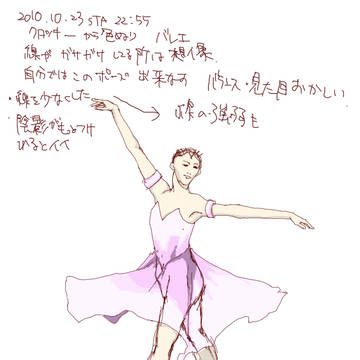 2010.10.23 STA 22:55
クロッキー から色ぬり バレエ
線が ガサガサ してる所は 想像
自分ではこのポーズ 出来なそ バランス・見た目おかしい
・線を少なくした → 線の強弱も
・陰影がもっとつけ
れるとイイ